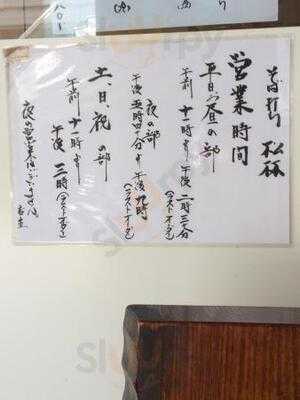 そば打ち 松林
営業時間
平日の昼の部
午前 十一時より 午後 二時三十分
(ラストオーダー)
夜の部
午後 五時四十分より 午後九時
(ラストオーダー)
土、日、祝の部
午前 十一時より
午後 三時(ラストオーダー)
夜の営業はございません。
店主